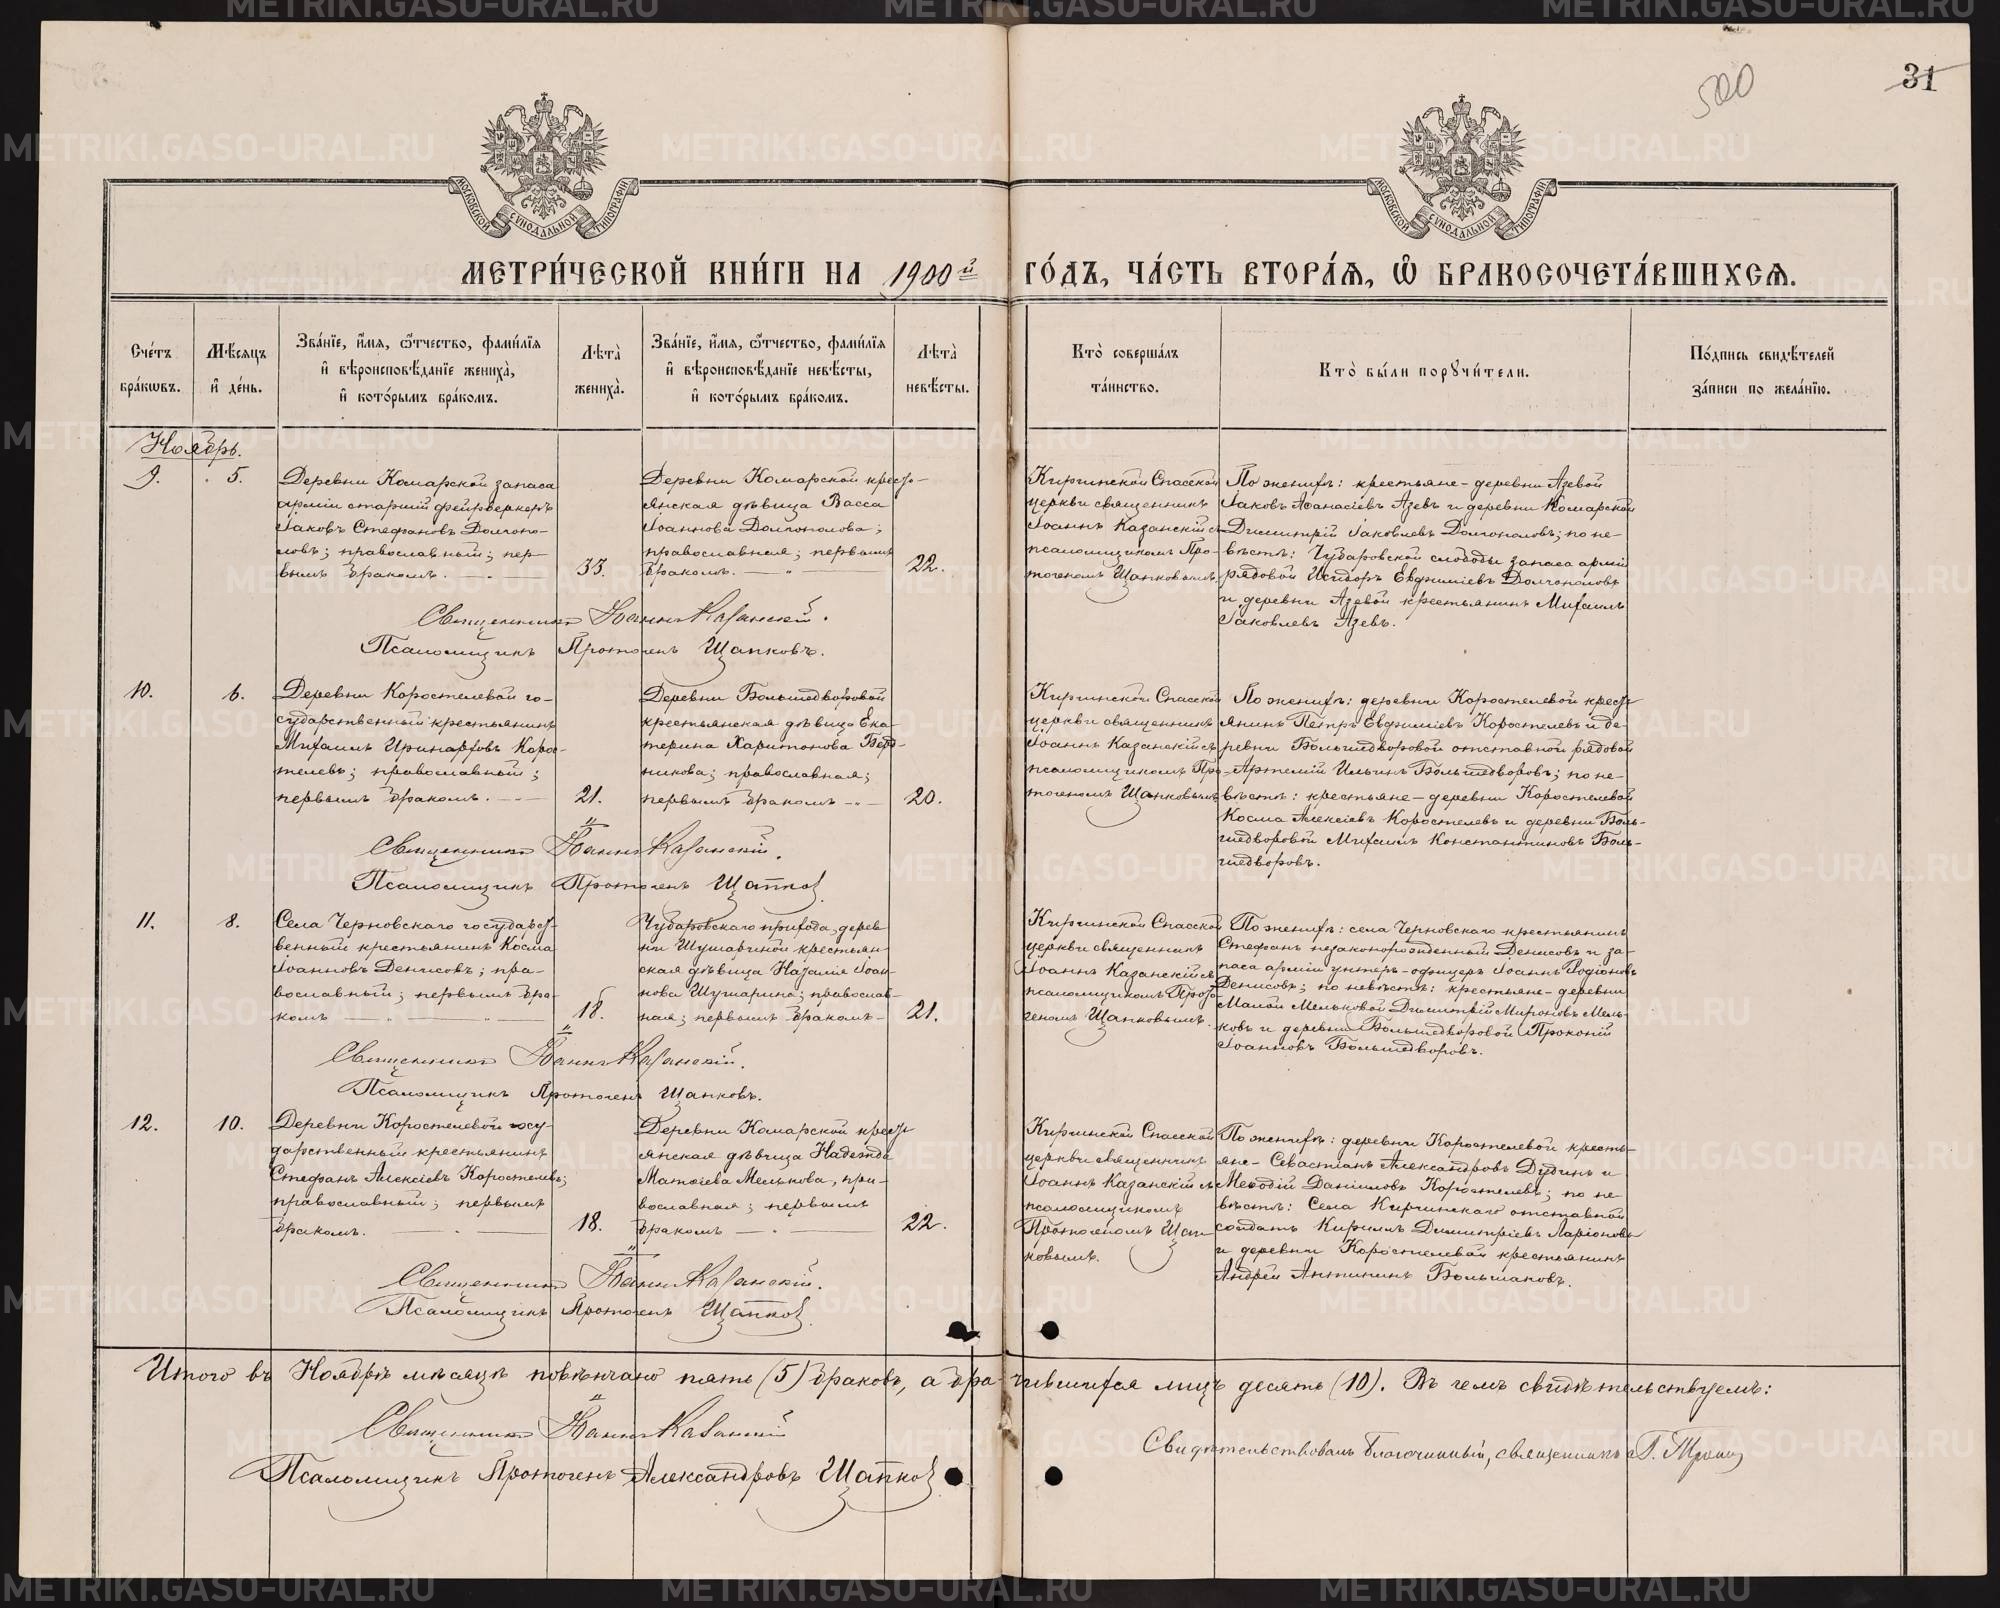 500
31
МОСКОВСКОЙ СѴНОДАЛЬНОЙ ТИПОГРАФІИ
МОСКОВСКОЙ СѴНОДАЛЬНОЙ ТИПОГРАФІИ
МЕТРИ́ЧЕСКОЙ КНИ́ГИ НА 1900й ГО́ДЪ, ЧА́СТЬ ВТОРА́Ѧ, Ѽ БРАКОСОЧЕТА́ВШИХСѦ.
Сче́тъ
бра́ковъ.
Мѣ́сяцъ
и де́нь.
Зва́нїе, и́мѧ, ѻ҆́тчество, фамилїѧ
и вѣроисповѣ́данїе жениха̀,
и кото́рымъ бра́комъ.
Лѣта̀
жениха̀.
Зва́нїе, и́мѧ, ѻ҆́тчество, фамилїѧ
и вѣроисповѣ́данїе невѣ́сты,
и кото́рымъ бра́комъ.
Лѣта̀
невѣ́сты.
Кто̀ соверша́лъ
та́инство.
Кто̀ бы́ли порꙋчи́тели.
По́дпись свидѣ́телей
за́писи по жела́нїю.
Ноябрь.
9.
5.
Деревни Комарской запаса
арміи старшій фейрверкеръ
Іаковъ Стефановъ Долгопо-
ловъ; православный; пер-
вымъ бракомъ.
33.
Деревни Комарской кресть-
янская дѣвица Васса
Іоаннова Долгополова;
православная; первымъ
бракомъ.
22.
Киргинской Спасской
церкви священникъ
Іоаннъ Казанскій съ
псаломщикомъ Про-
тогеномъ Щапковымъ.
По женихѣ: крестьяне - деревни Азевой
Іаковъ Аѳанасіевъ Азевъ и деревни Комарской
Димитрій Іаковлевъ Долгополовъ; по не-
вѣстѣ: Чубаровской слободы запаса арміи
рядовой Исидоръ Евфиміевъ Долгополовъ
и деревни Азевой крестьянинъ Михаилъ
Іаковлевъ Азевъ.
Священникъ Іоаннъ Казанскій.
Псаломщикъ Протогенъ Щапковъ.
10.
6.
Деревни Коростелевой го-
сударственный крестьянинъ
Михаилъ Иринарховъ Корос-
телевъ; православный;
первымъ бракомъ.
21.
Деревни Большедворовой
крестьянская дѣвица Ека-
терина Харитонова Берд-
никова; православная;
первымъ бракомъ
20.
Киргинской Спасской
церкви священникъ
Іоаннъ Казанскій съ
псаломщикомъ Про-
тогеномъ Щапковымъ
По женихѣ: деревни Коростелевой кресть-
янинъ Петръ Евфиміевъ Коростелевъ и де-
ревни Большедворовой отставной рядовой
Артемій Ильинъ Большедворовъ; по не-
вѣстѣ: крестьяне - деревни Коростелевой
Косма Алексіевъ Коростелевъ и деревни Боль-
шедворовой Михаилъ Константиновъ Боль-
шедворовъ.
Священникъ Іоаннъ Казанскій.
Псаломщикъ Протогенъ Щапковъ
11.
8.
Села Черновскаго государст-
венный крестьянинъ Косма
Іоанновъ Денисовъ; пра-
вославный; первымъ бра-
комъ
18.
Чубаровскаго прихода, дерев
ни Шушариной крестьян-
ская дѣвица Наталія Іоан-
нова Шушарина; православ-
ная; первымъ бракомъ
21.
Киргинской Спасской
церкви священникъ
Іоаннъ Казанскій съ
псаломщикомъ Прото-
геномъ Щапковымъ.
По женихѣ: села Черновскаго крестьянинъ
Стефанъ незаконорожденный Денисовъ и за-
паса арміи унтеръ-офицеръ Іоаннъ Родіоновъ
Денисовъ; по невѣстѣ: крестьяне - деревни
Малой Мельковой Димитрій Мироновъ Мель-
ковъ и деревни Большедворовой Прокопій
Іоанновъ Большедворовъ.
Священникъ Іоаннъ Казанскій.
Псаломщикъ Протогенъ Щапковъ.
12.
10.
Деревни Коростелевой госу-
дарственный крестьянинъ
Стефанъ Алексіевъ Коростелевъ;
православный; первымъ
бракомъ.
18.
Деревни Комарской кресть-
янская дѣвица Надежда
Матѳіева Мелькова, пра-
вославная; первымъ
бракомъ
22.
Киргинской Спасской
церкви священникъ
Іоаннъ Казанскій съ
псаломщикомъ
Протогеномъ Щап-
ковымъ.
По женихѣ: деревни Коростелевой кресть-
яне - Севастіанъ Александровъ Дудинъ и
Меѳодій Даніиловъ Коростелевъ; по не-
вѣстѣ: Села Киргинскаго отставной
солдатъ Кириллъ Димитріевъ Ларіоновъ
и деревни Коростелевой крестьянинъ
Андрей Антипинъ Большаковъ.
Священникъ Іоаннъ Казанскій.
Псаломщикъ Протогенъ Щапковъ
Итого въ Ноябрѣ мѣсяцѣ повѣнчано пять (5) браковъ, а бра-чившихся лицъ десять (10). Въ чемъ свидѣтельствуемъ:
Священникъ Іоаннъ Казанскій
Псаломщикъ Протогенъ Александровъ Щапковъ
Свидѣтельствовалъ благочинный, священникъ Г.
METRIKI.GASO-URAL.RU